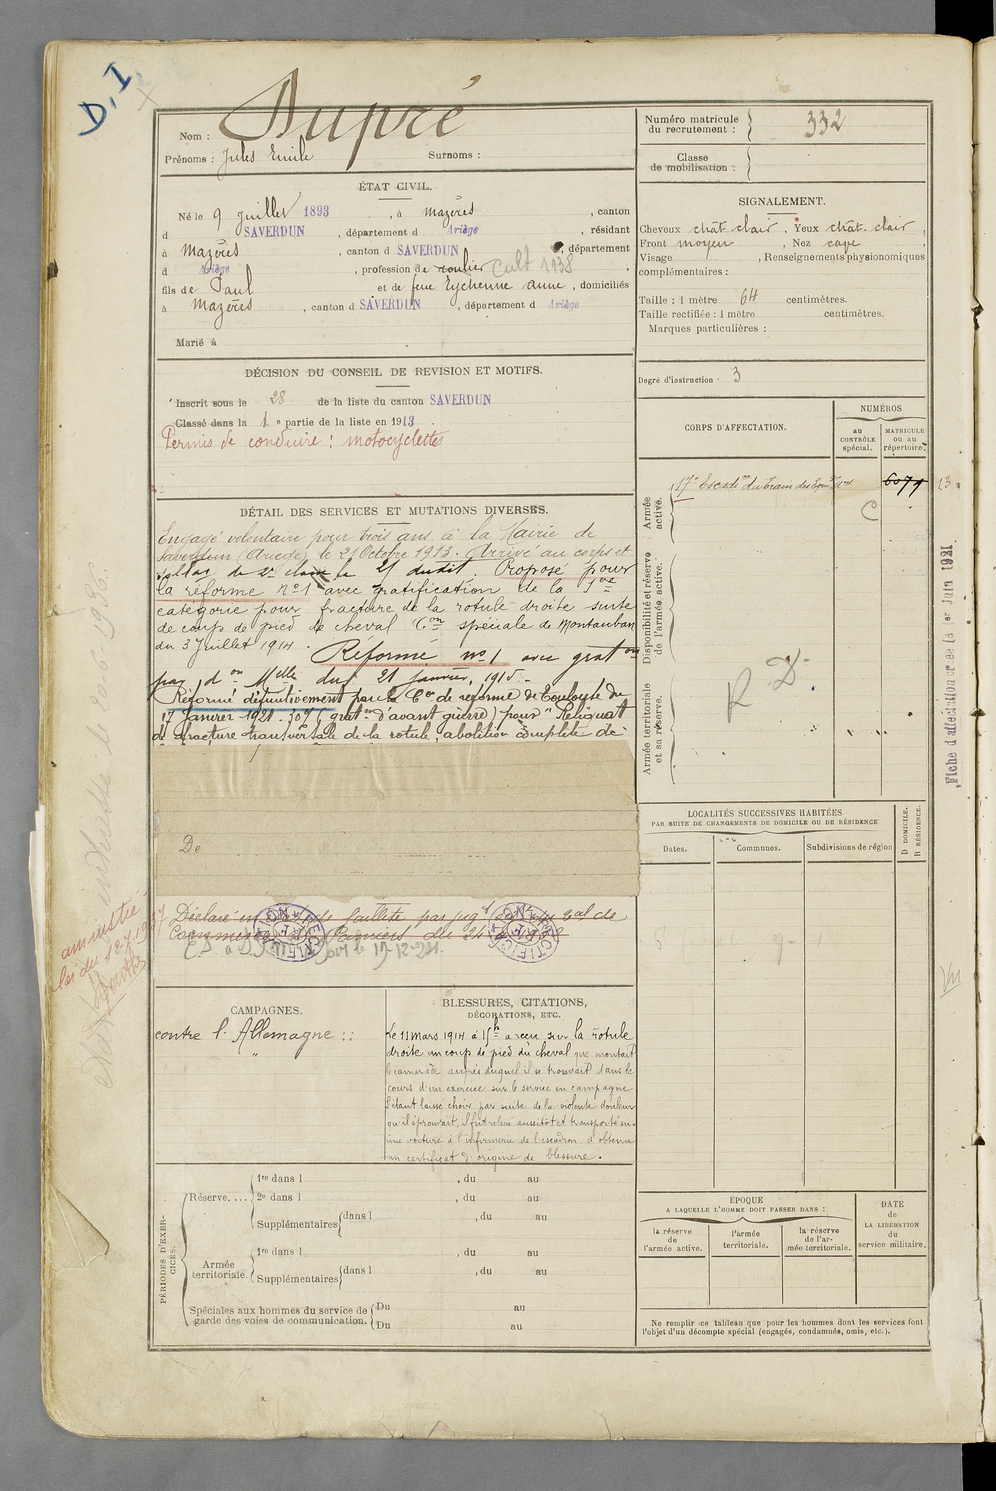 D, I
Nom : Dupré
Prénoms : Jules Emile Surnoms :
Numéro matricule du recrutement : 332
Classe de mobilisation :
ÉTAT CIVIL.
Né le 9 juillet 1893, à Mazères, canton
d SAVERDUN, département d Ariège, résidant
à Mazères, canton d SAVERDUN, département
d Ariège, profession de roulier Cult 1938
fils de Paul et de feue Eychenne Anne, domiciliés
à Mazères, canton d SAVERDUN, département d Ariège
Marié à
SIGNALEMENT.
Cheveux chât. clair, Yeux chât. clair,
Front moyen, Nez cave
Visage , Renseignements physionomiques
complémentaires :
Taille : 1 mètre 64 centimètres.
Taille rectifiée : 1 mètre centimètres.
Marques particulières :
Degré d'instruction : 3
DÉCISION DU CONSEIL DE REVISION ET MOTIFS.
Inscrit sous le 28 de la liste du canton SAVERDUN
Classé dans la 1e partie de la liste en 1913.
Permis de conduire : motocyclettes
CORPS D'AFFECTATION.
NUMÉROS
au CONTRÔLE spécial.
MATRICULE ou au répertoire.
Armée active.
17e Escad on du train des Equip
6079
13
C
Disponibilité et réserve de l'armée active.
Armée territoriale et sa réserve.
R D.
Fiche d'affectation er de la 1er Juin 1921
DÉTAIL DES SERVICES ET MUTATIONS DIVERSES.
Engagé volontaire pour trois ans à la Mairie de
Saverdun (Ariège) le 21 Octobre 1913. Arrivé au corps et
soldat de 2e classe le 25 dudit. Proposé pour
la réforme no 1 avec gratification de la 5me
catégorie pour fracture de la rotule droite suite
de coup de pied de cheval Con spéciale de Montauban
du 3 Juillet 1914. Réformé no 1 avec graton
par don Melle du 21 Janvier 1915.
Réformé définitivement par la Con de réforme de Toulouse du
17 Janvier 1921 - 30% (graton d'avant guerre) pour "Reliquat
de fracture transversale de la rotule, abolition complète de
De
Déclaré en faillite par jugt du tribunal de
Commerce de Pamiers du 24
RECTIFICATION
19-12-
amnistié
loi du 12.7.1937
LOCALITÉS SUCCESSIVES HABITÉES
PAR SUITE DE CHANGEMENTS DE DOMICILE OU DE RÉSIDENCE
Dates. Communes. Subdivisions de région
D DOMICILE.
R RÉSIDENCE.
CAMPAGNES.
contre l'Allemagne : :
"
BLESSURES, CITATIONS,
DÉCORATIONS, ETC.
Le 11 Mars 1914 à 15h a reçu sur la rotule
droite un coup de pied du cheval que montait
le camarade auprès duquel il se trouvait dans le
cours d'un exercice sur le service en campagne
S'étant laissé choir par suite de la violente douleur
qu'il éprouvait, il fut relevé aussitôt et transporté sur
une voiture à l'infirmerie de l'escadron a obtenu
un certificat d'origine de blessure.
PÉRIODES D'EXERCICES.
Réserve....
1re dans l , du au
2e dans l , du au
Supplémentaires dans l , du au
Armée territoriale.
1re dans l , du au
Supplémentaires dans l , du au
Spéciales aux hommes du service de garde des voies de communication.
Du au
Du au
ÉPOQUE
A LAQUELLE L'HOMME DOIT PASSER DANS :
la réserve de l'armée active.
l'armée territoriale.
la réserve de l'armée territoriale.
DATE de LA LIBÉRATION du service militaire.
Ne remplir ce tableau que pour les hommes dont les services font
l'objet d'un décompte spécial (engagés, condamnés, omis, etc.).